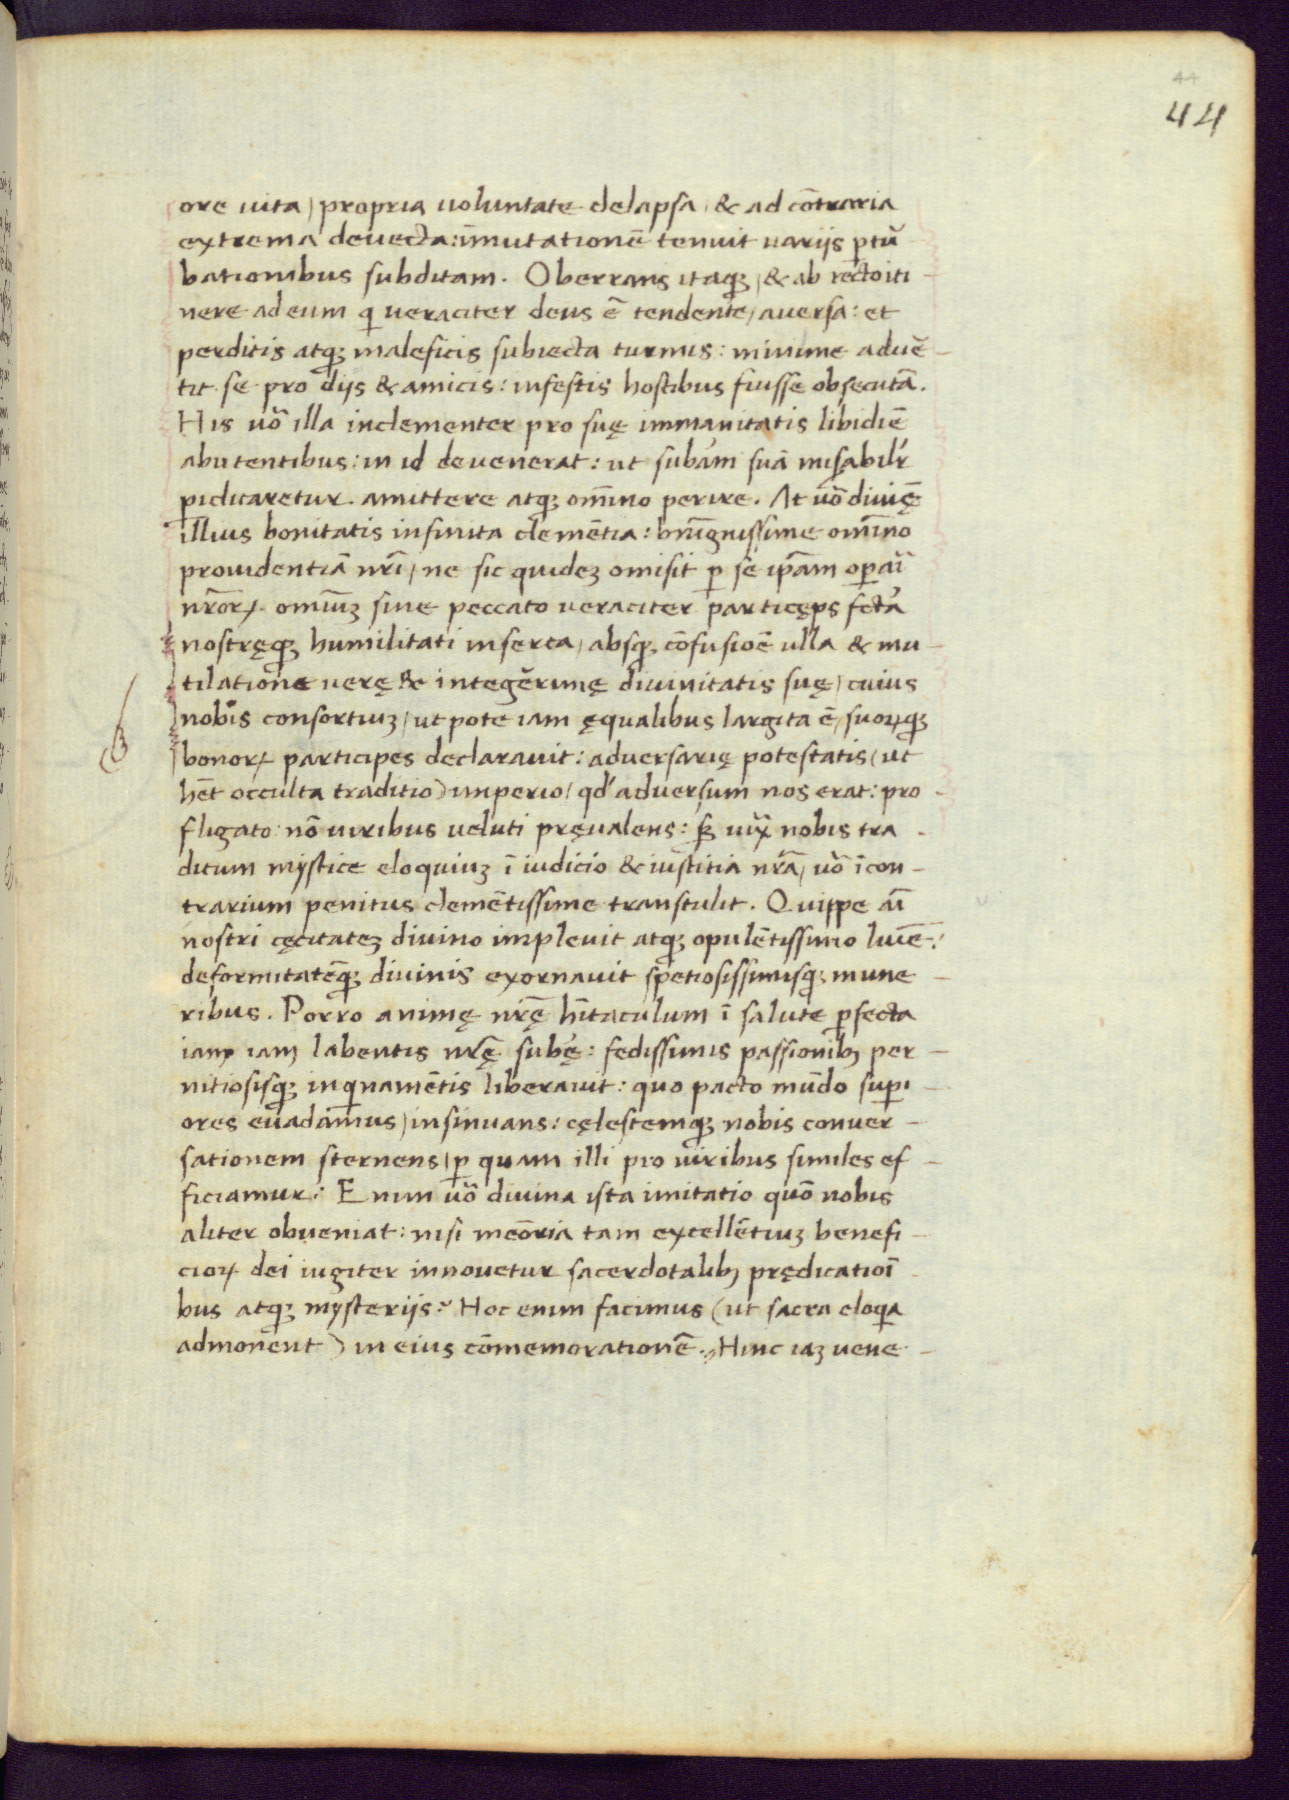 44
44
ore uita / propria uoluntate delapsa / & ad cōtraria
extrema deuecta: īmutationē tenuit uarijs ꝑtū
bationibus subditam. Oberrans itaqꝫ / & ab rectoiti
nere ad eum q ueraciter deus ē tendente / auersa: et
perditis atqꝫ maleficis subiecta turmis: minime aduē-
tit se pro dijs & amicis: infestis hostibus fuisse obsecutā.
His uo᷒ illa inclementer pro suę immanitatis libidiē
abutentibus: in id deuenerat: ut
amittere atqꝫ om̄ino perire. At uō diuię̄
illius bonitatis infinita clemētia: om̄ino
prouidentiā nr̄i / ne sic quideꝫ omisit ꝑ se ip̄am
nr̄oꝝ omniuꝫ sine peccato ueraciter particęps fctā
nostręqꝫ humilitati inserta / absqꝫ cōfusioē ulla & mu-
tilatione uerę & integērimę diuinitatis suę / cuius
nobis consortiuꝫ / ut pote iam ęqualibus largita ē / suoꝝqꝫ
bonoꝝ participes declarauit: aduersarię potestatis (ut
hēt occulta traditio) imperio / qd' aduersum nos erat: pro-
fligato: nō uiribus ueluti pręualens: nobis tra-
ditum mystice eloquiuꝫ ī iudicio & iustitia nr̄a / uō ī con-
trarium penitus clemētissime transtulit. Quippe aī
nostri cęcitateꝫ diuino impleuit atqꝫ opulētissimo luīe:
deformitatēqꝫ diuinis exornauit spetiosissimisqꝫ mune-
ribus. Porro animę nr̄ę h̄itaculum ī salute ꝑfecta
iam iam labentis nr̄ę subę: fedissimis passionibꝫ per-
nitiosisqꝫ inquinamētis liberauit: quo pacto mūdo suꝑi-
ores euadāmus / insinuans: cęlestemqꝫ nobis conuer-
sationem sternens / ꝑ quam illi pro uiribus similes ef-
ficiamur: Enim uō diuina ista imitatio quō nobis
aliter obueniat: nisi meōria tam excellētiuꝫ benefi-
cioꝝ dei iugiter innouetur sacerdotalibꝫ prędicatioī-
bus atqꝫ mysterijs? Hoc enim facimus (ut sacra eloqia
admonent) in eius cōmemorationē. Hinc iaꝫ uene-